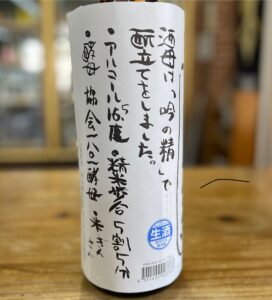 酒母は、「吟の精」で
酛立てをしました。
・アルコール16.5度 ・精米歩合 5割5分
・酵母 協会一八〇一酵母 ・米 ぎん
生酒